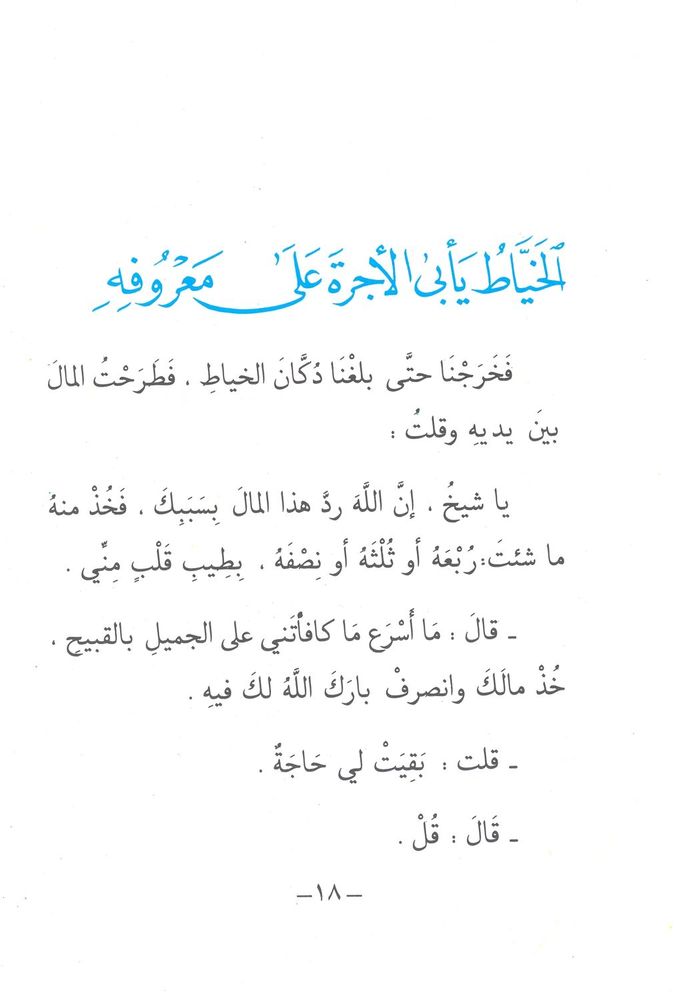 الخَيَّاطُ يَأبىٰ الأجرةَ عَلَىٰ مَعْرُوفِهِ
فَخَرَجْنَا حتَّى بلغْنَا دُكَّانَ الخياطِ ، فَطَرَحْتُ المالَ
بينَ يديهِ وقلتُ :
يا شيخُ ، إنَّ اللَّهَ ردَّ هذا المالَ بِسَبَبِكَ ، فَخُذْ منهُ
ما شئتَ: رُبْعَهُ أو ثُلْثَهُ أو نِصْفَهُ ، بِطِيبِ قَلْبٍ مِنِّي .
ـ قالَ : مَا أَسْرَع مَا كافأْتَني على الجميلِ بالقبيحِ ،
خُذْ مالَكَ وانصرفْ بارَكَ اللَّهُ لكَ فيهِ .
ـ قلت : بَقِيَتْ لي حَاجَةٌ .
ـ قَالَ : قُلْ .
–١٨–